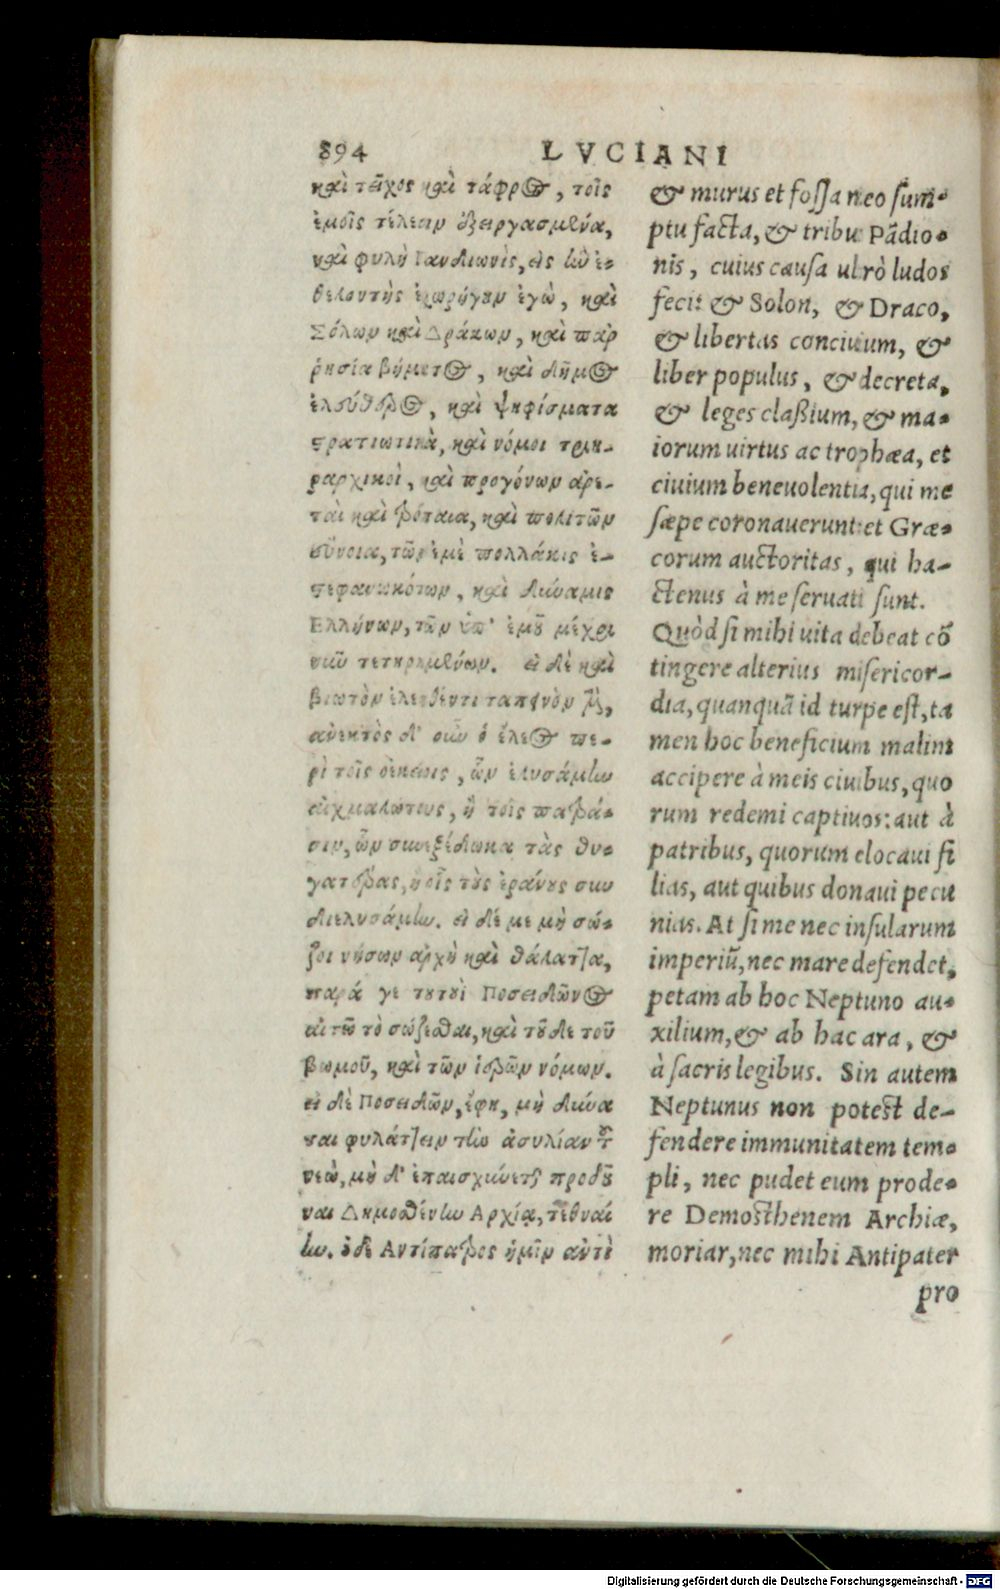 894 LVCIANI
καὶ τεῖχος καὶ τάφρος, τοῖς
ἐμοῖς τέλεσιν ἐξειργασμένα,
καὶ φυλὴ Πανδιωνὶς, εἰς ἣν ἐ-
θελοντὴς ἐχωρήγουν ἐγὼ, καὶ
Σόλων καὶ Δράκων, καὶ παρ
ῥησία βήματος, καὶ δῆμος
ἐλεύθερος, καὶ ψηφίσματα
στρατιωτικὰ, καὶ νόμοι τριη-
ραρχικοὶ, καὶ προγόνων ἀρε-
ταὶ καὶ τρόπαια, καὶ πολιτῶν
εὔνοια, τῶν ἐμὲ πολλάκις ἐ-
στεφανωκότων, καὶ δύναμις
Ελλήνων, τῶν ὑπ' ἐμοῦ μέχρι
νῦν τετηρημένων. εἰ δὲ καὶ
βιωτὸν ἐλεηθέντι ταπεινὸν μὲν,
ἀνεκτὸς δ' οὖν ὁ ἔλεος πε-
ρὶ τοῖς οἰκείοις, ὧν ἐλυσάμην
αἰχμαλώτους, ἢ τοῖς πατρά-
σιν, ὧν συνεξέδωκα τὰς θυ-
γατέρας, ἢ οἷς τοὺς ἐράνους συν
διελυσάμην. εἰ δέ με μὴ σώ-
ζοι νήσων ἀρχὴ καὶ θάλαττα,
παρά γε τουτουὶ Ποσειδῶνος
αἰτῶ τὸ σώζεσθαι, καὶ τοῦδε τοῦ
βωμοῦ, καὶ τῶν ἱερῶν νόμων.
εἰ δὲ Ποσειδῶν, ἔφη, μὴ δύνα
ται φυλάττειν τὴν ἀσυλίαν τοῦ
νεὼ, μὴ δ' ἐπαισχύνεται προδοῦ
ναι Δημοσθένην Αρχίᾳ, τεθναί
ην. ὁδὲ Αντίπατρος ἡμῖν ἀντὶ
& murus et fossa meo sum-
ptu facta, & tribus Pādio-
nis, cuius causa ultrò ludos
feci: & Solon, & Draco,
& libertas concinium, &
liber populus, & decreta,
& leges claßium, & ma-
iorum uirtus ac trophæa, et
ciuium beneuolentia, qui me
sæpe coronauerunt: et Græ-
corum auctoritas, qui ha-
ctenus à me seruati sunt.
Quòd si mihi uita debeat cō
tingere alterius misericor-
dia, quanquā id turpe est, ta
men hoc beneficium malim
accipere à meis ciuibus, quo
rum redemi captiuos: aut à
patribus, quorum elocaui fi
lias, aut quibus donaui pecu
nias. At si me nec insularum
imperiū, nec mare defendet,
petam ab hoc Neptuno au-
xilium, & ab hac ara, &
à sacris legibus. Sin autem
Neptunus non potest de-
fendere immunitatem tem-
pli, nec pudet eum prode-
re Demosthenem Archiæ,
moriar, nec mihi Antipater
pro
Digitalisierung gefördert durch die Deutsche Forschungsgemeinschaft - DFG